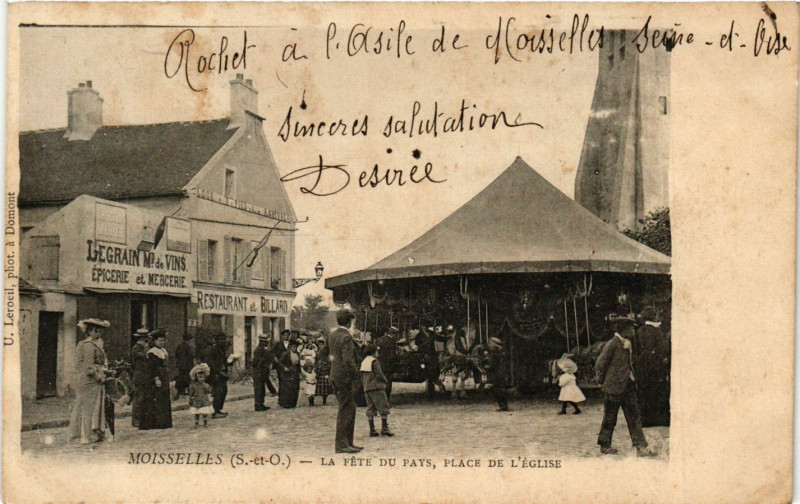 Rochet à l'Asile de Moisselles Seine-et-Oise
Sinceres salutations
Desirée
LEGRAIN Md DE VINS
ÉPICERIE ET MERCERIE
RESTAURANT et BILLARD
U. Leroeil, phot. à Domont
MOISSELLES (S.-et-O.) — LA FÊTE DU PAYS, PLACE DE L'ÉGLISE